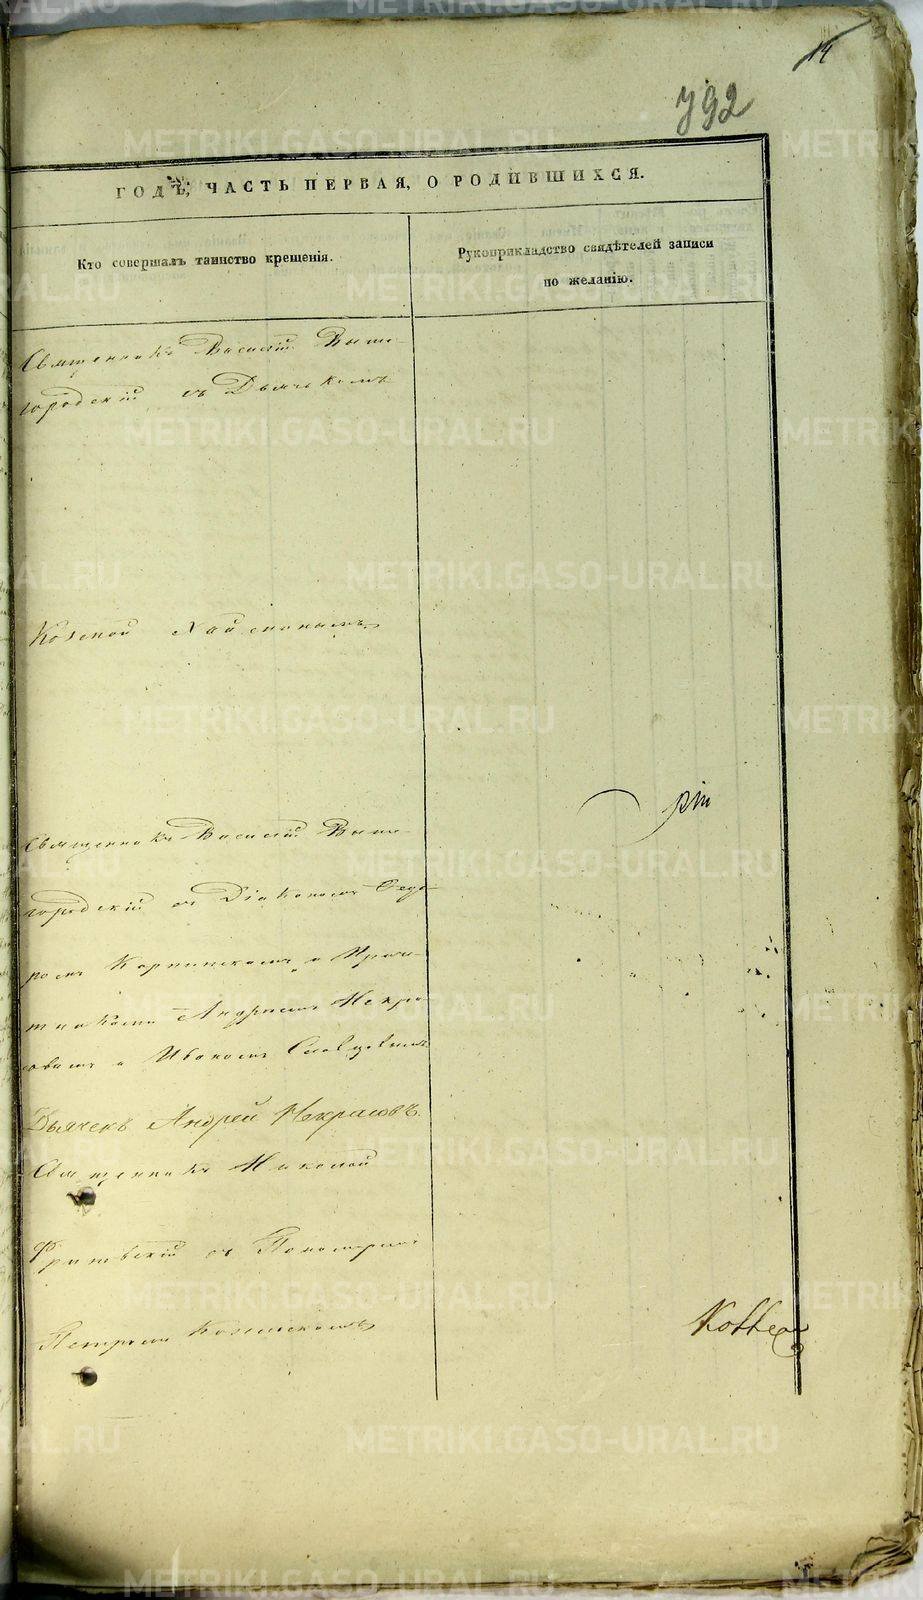 14
792
ГОДЪ, ЧАСТЬ ПЕРВАЯ, О РОДИВШИХСЯ.
Кто совершалъ таинство крещенія.
Рукоприкладство свидѣтелей записи
по желанію.
Священникъ Василій Выше-
городскій съ Дьячкомъ
Священникъ Василій Выше-
городскій съ Діакономъ Ѳедо-
ромъ и Прич-
тниками Андреемъ Некра-
совымъ и Иваномъ
Дьячекъ Андрей Некрасовъ.
Священникъ Николай
съ Пономаремъ
Петромъ
METRIKI.GASO-URAL.RU